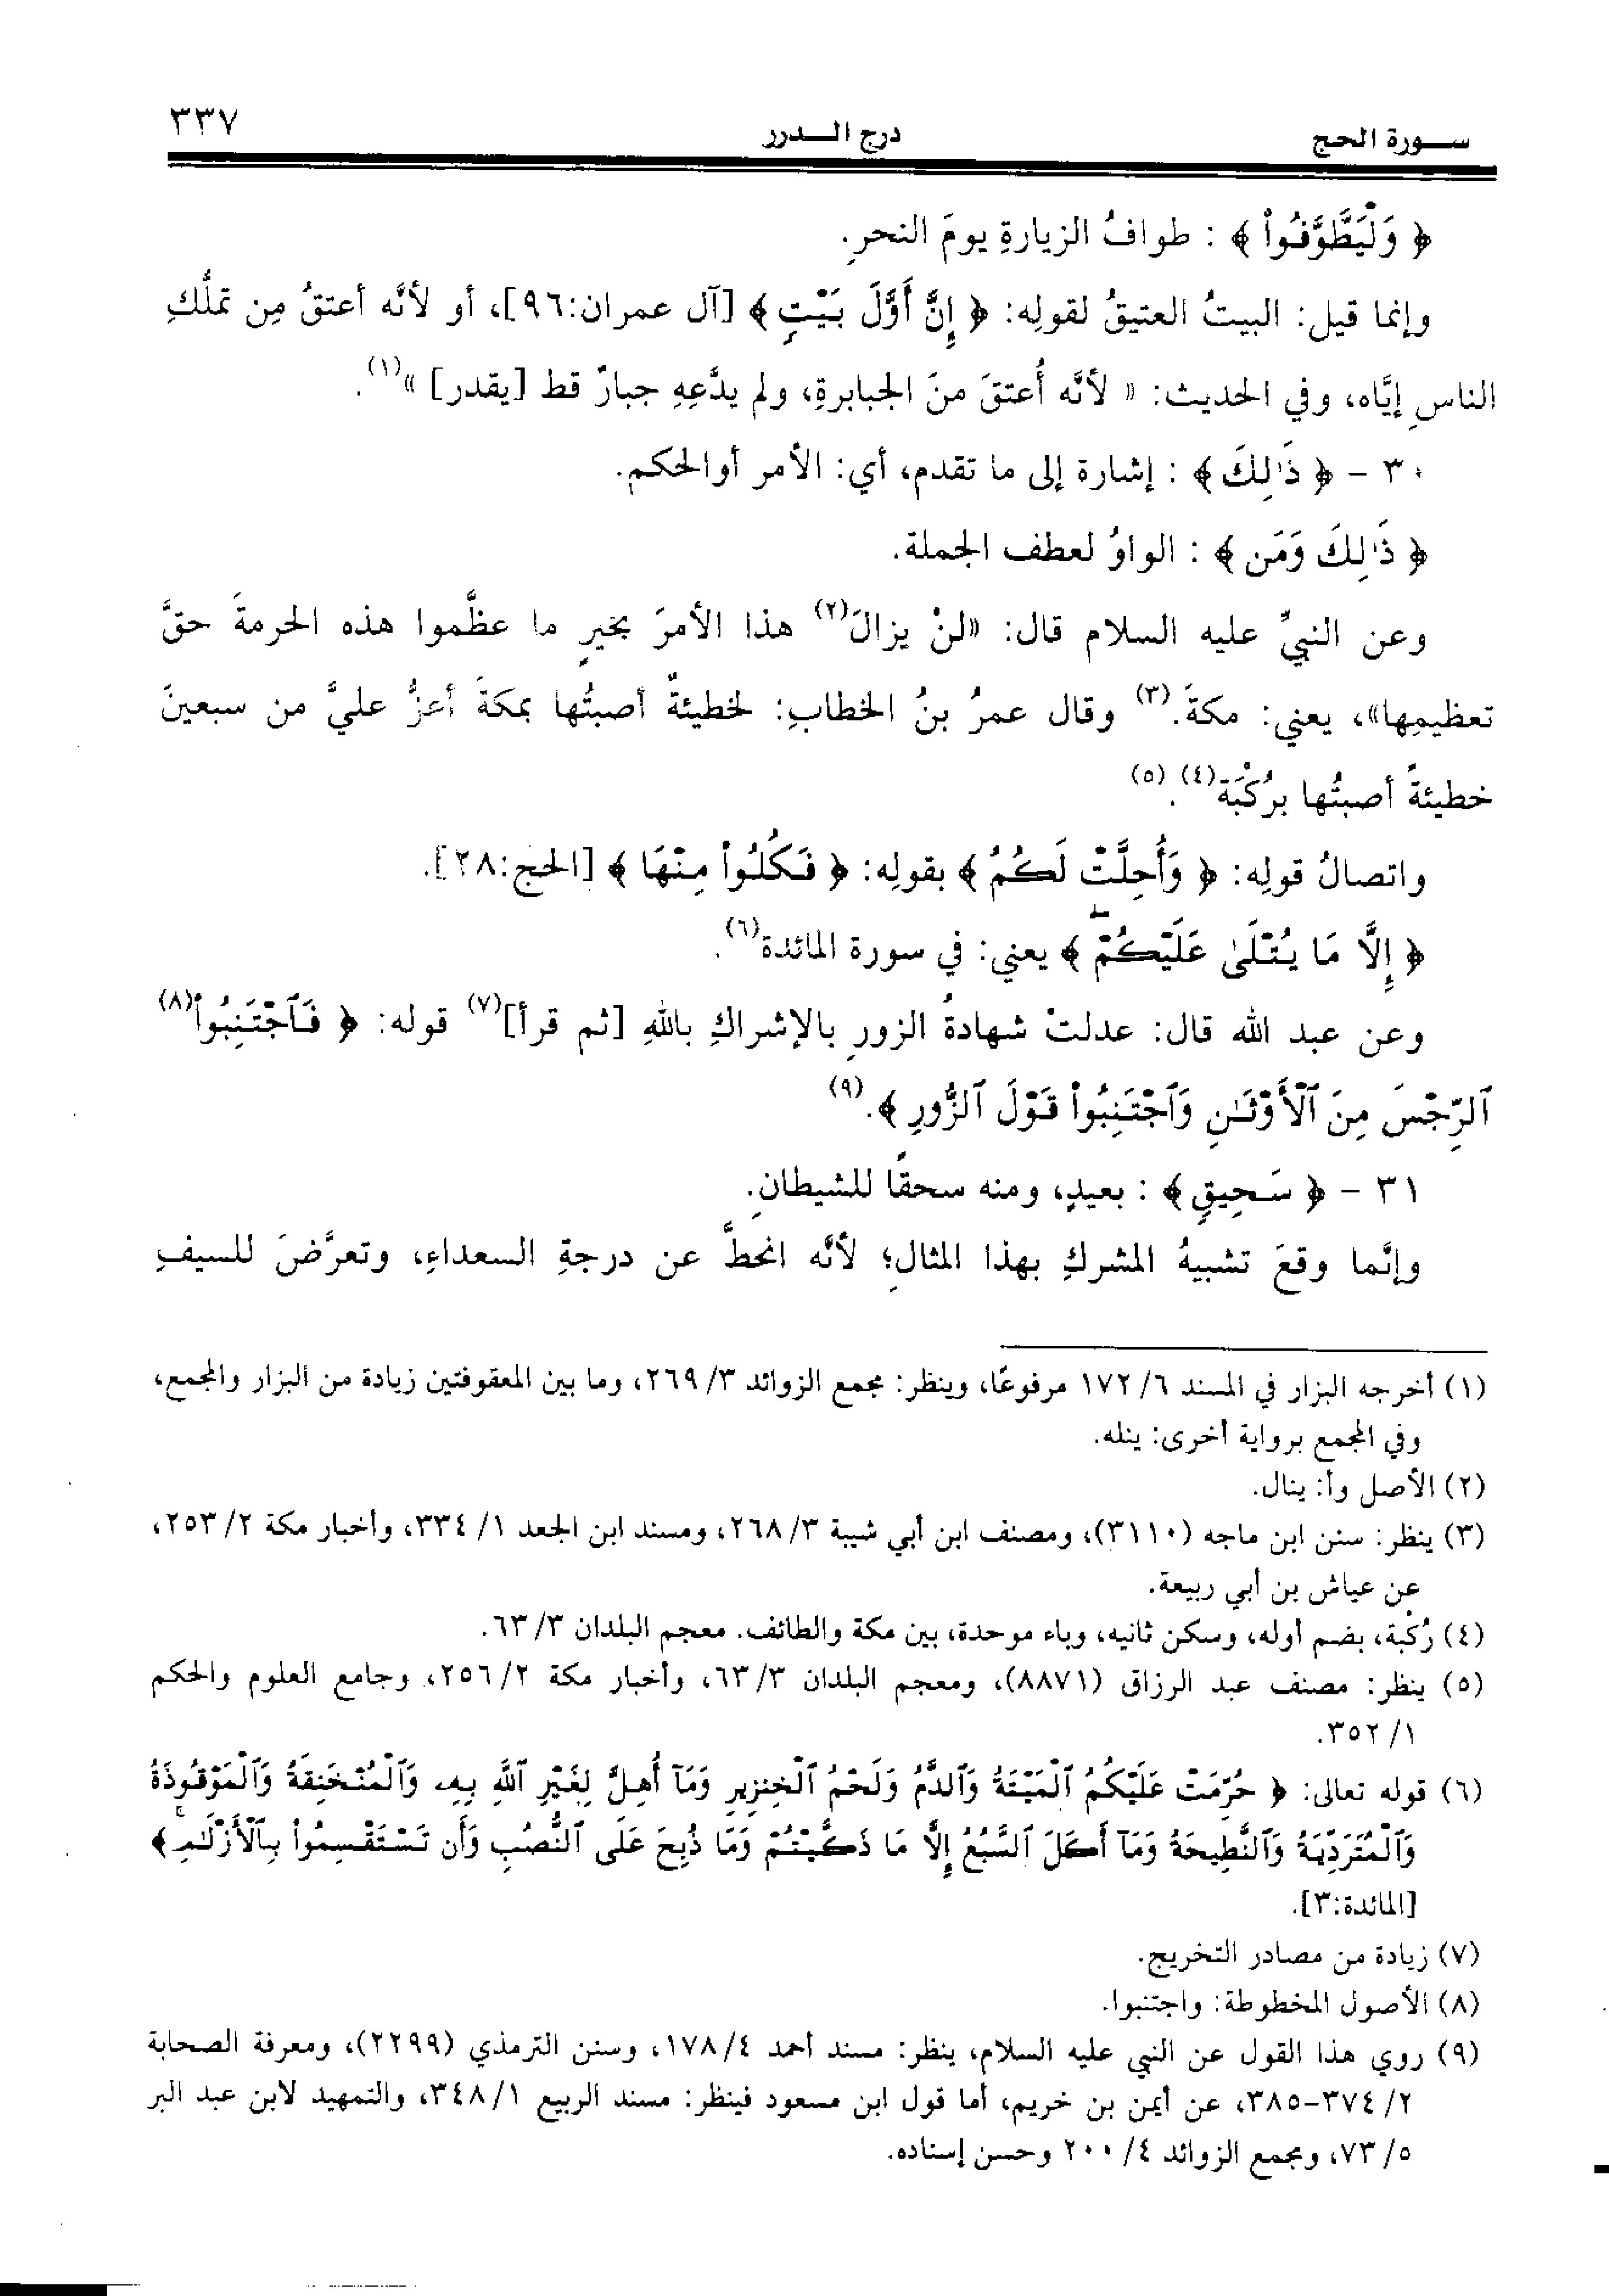 سورة الحج درج الدرر ٣٣٧
﴿ وَلْيَطَّوَّفُواْ ﴾ : طوافُ الزيارةِ يومَ النحرِ.
وإنما قيل: البيتُ العتيقُ لقولِه: ﴿ إِنَّ أَوَّلَ بَيْتٍ ﴾ [آل عمران:٩٦]، أو لأنَّه أعتقُ مِن تملُّكِ
الناسِ إيَّاه، وفي الحديث: « لأنَّه أُعتقَ منَ الجبابرةِ، ولم يدَّعِهِ جبارٌ قط [يقدر] »(١).
٣٠ - ﴿ ذَٰلِكَ ﴾ : إشارة إلى ما تقدم، أي: الأمر أوالحكم.
﴿ ذَٰلِكَ وَمَن ﴾ : الواوُ لعطف الجملة.
وعن النبيِّ عليه السلام قال: «لنْ يزالَ(٢) هذا الأمرَ بخيرٍ ما عظَّموا هذه الحرمةَ حقَّ
تعظيمِها»، يعني: مكةَ.(٣) وقال عمرُ بنُ الخطابِ: لخطيئةٌ أصبتُها بمكةَ أعزُّ عليَّ من سبعينَ
خطيئةً أصبتُها برُكْبَة(٤).(٥)
واتصالُ قولِه: ﴿ وَأُحِلَّتْ لَكُمُ ﴾ بقولِه: ﴿ فَكُلُواْ مِنْهَا ﴾ [الحج:٢٨].
﴿ إِلَّا مَا يُتْلَىٰ عَلَيْكُمْ ﴾ يعني: في سورة المائدة(٦).
وعن عبد الله قال: عدلتْ شهادةُ الزورِ بالإشراكِ باللهِ [ثم قرأ](٧) قوله: ﴿ فَٱجْتَنِبُواْ(٨)
ٱلرِّجْسَ مِنَ ٱلْأَوْثَـٰنِ وَٱجْتَنِبُواْ قَوْلَ ٱلزُّورِ ﴾.(٩)
٣١ - ﴿ سَحِيقٍ ﴾ : بعيدٍ، ومنه سحقًا للشيطانِ.
وإنَّما وقعَ تشبيهُ المشركِ بهذا المثالِ؛ لأنَّه انحطَّ عن درجةِ السعداءِ، وتعرَّضَ للسيفِ
(١) أخرجه البزار في المسند ٦/ ١٧٢ مرفوعًا، وينظر: مجمع الزوائد ٣/ ٢٦٩، وما بين المعقوفتين زيادة من البزار والمجمع،
وفي المجمع برواية أخرى: ينله.
(٢) الأصل وأ: ينال.
(٣) ينظر: سنن ابن ماجه (٣١١٠)، ومصنف ابن أبي شيبة ٣/ ٢٦٨، ومسند ابن الجعد ١/ ٣٣٤، وأخبار مكة ٢/ ٢٥٣،
عن عياش بن أبي ربيعة.
(٤) رُكْبة، بضم أوله، وسكن ثانيه، وباء موحدة، بين مكة والطائف. معجم البلدان ٣/ ٦٣.
(٥) ينظر: مصنف عبد الرزاق (٨٨٧١)، ومعجم البلدان ٣/ ٦٣، وأخبار مكة ٢/ ٢٥٦، وجامع العلوم والحكم
١/ ٣٥٢.
(٦) قوله تعالى: ﴿ حُرِّمَتْ عَلَيْكُمُ ٱلْمَيْتَةُ وَٱلدَّمُ وَلَحْمُ ٱلْخِنزِيرِ وَمَآ أُهِلَّ لِغَيْرِ ٱللَّهِ بِهِۦ وَٱلْمُنْخَنِقَةُ وَٱلْمَوْقُوذَةُ
وَٱلْمُتَرَدِّيَةُ وَٱلنَّطِيحَةُ وَمَآ أَكَلَ ٱلسَّبُعُ إِلَّا مَا ذَكَّيْتُمْ وَمَا ذُبِحَ عَلَى ٱلنُّصُبِ وَأَن تَسْتَقْسِمُواْ بِٱلْأَزْلَـٰمِ ۚ ﴾
[المائدة:٣].
(٧) زيادة من مصادر التخريج.
(٨) الأصول المخطوطة: واجتنبوا.
(٩) روي هذا القول عن النبي عليه السلام، ينظر: مسند أحمد ٤/ ١٧٨، وسنن الترمذي (٢٢٩٩)، ومعرفة الصحابة
٢/ ٣٧٤-٣٨٥، عن أيمن بن خريم، أما قول ابن مسعود فينظر: مسند الربيع ١/ ٣٤٨، والتمهيد لابن عبد البر
٥/ ٧٣، ومجمع الزوائد ٤/ ٢٠٠ وحسن إسناده.